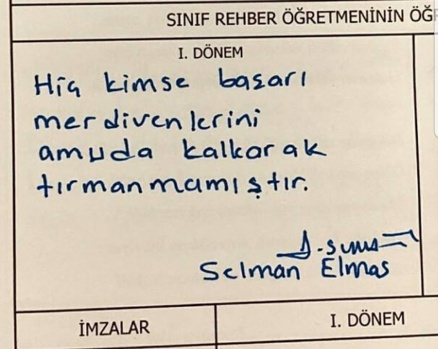 SINIF REHBER ÖĞRETMENİNİN ÖĞ
I. DÖNEM
Hiç kimse başarı
merdivenlerini
amuda kalkarak
tırmanmamıştır.
Selman Elmas
İMZALAR
I. DÖNEM